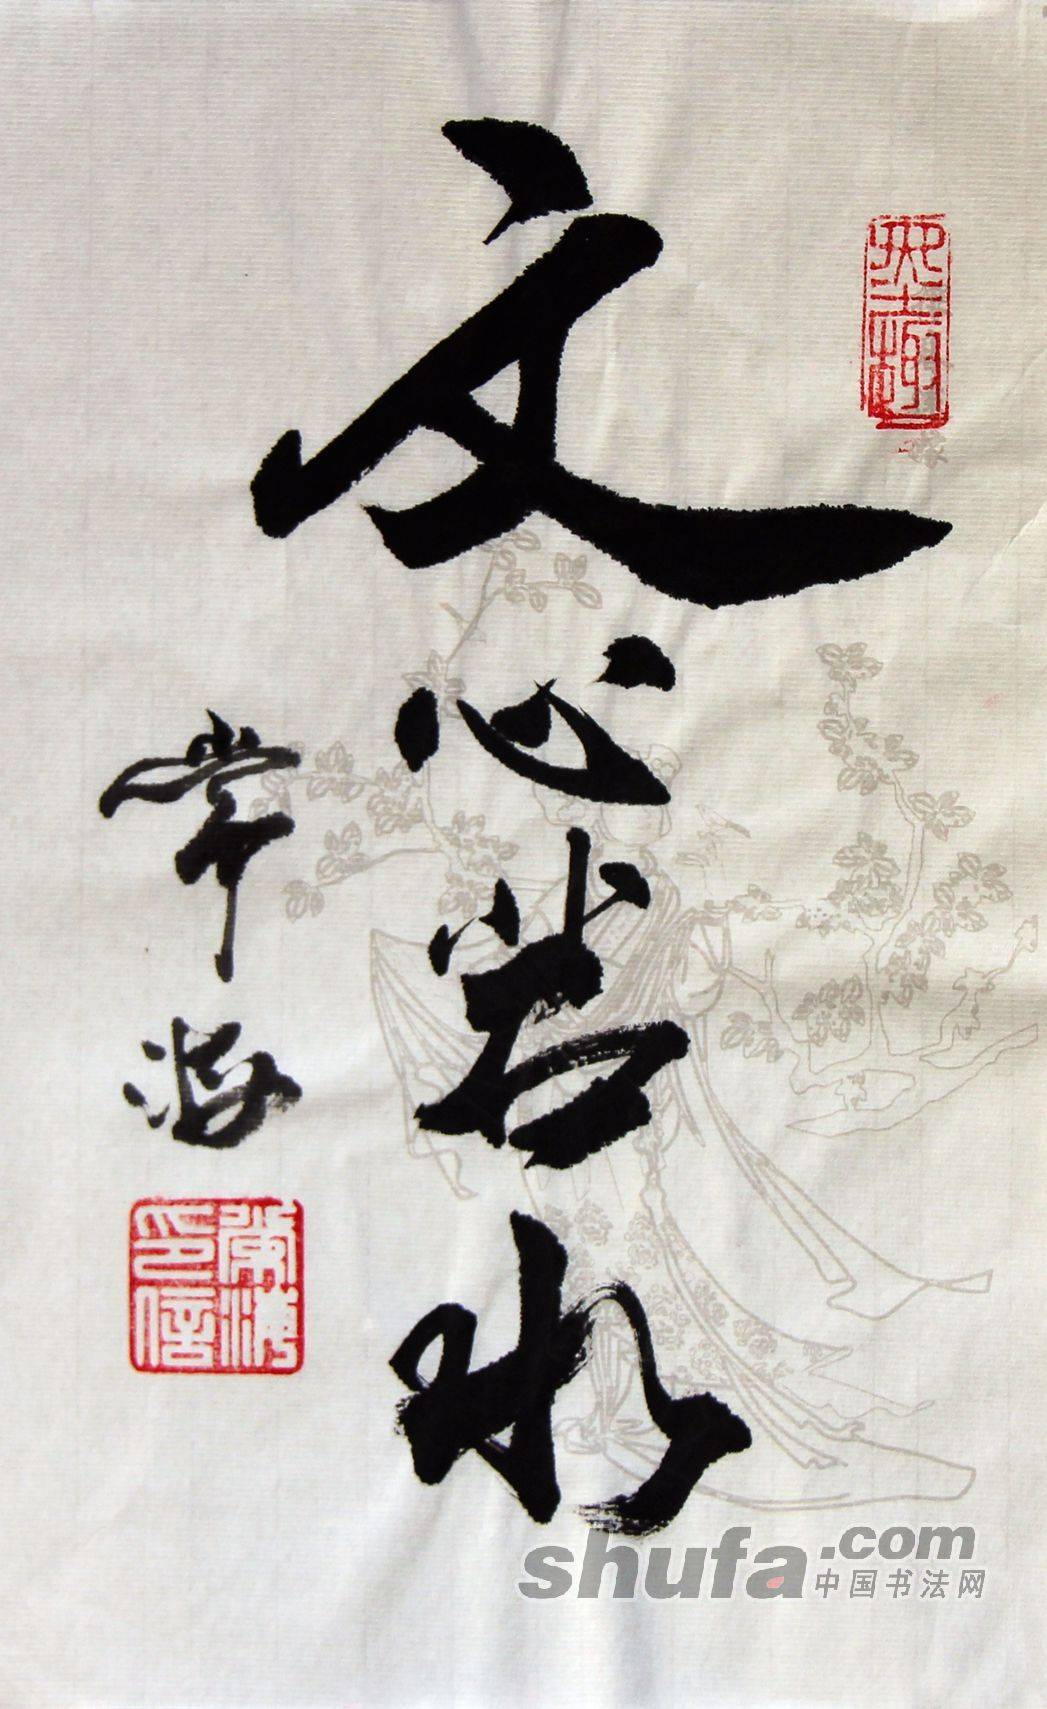 文心若水
常海
常海印信
shufa.com
中国书法网